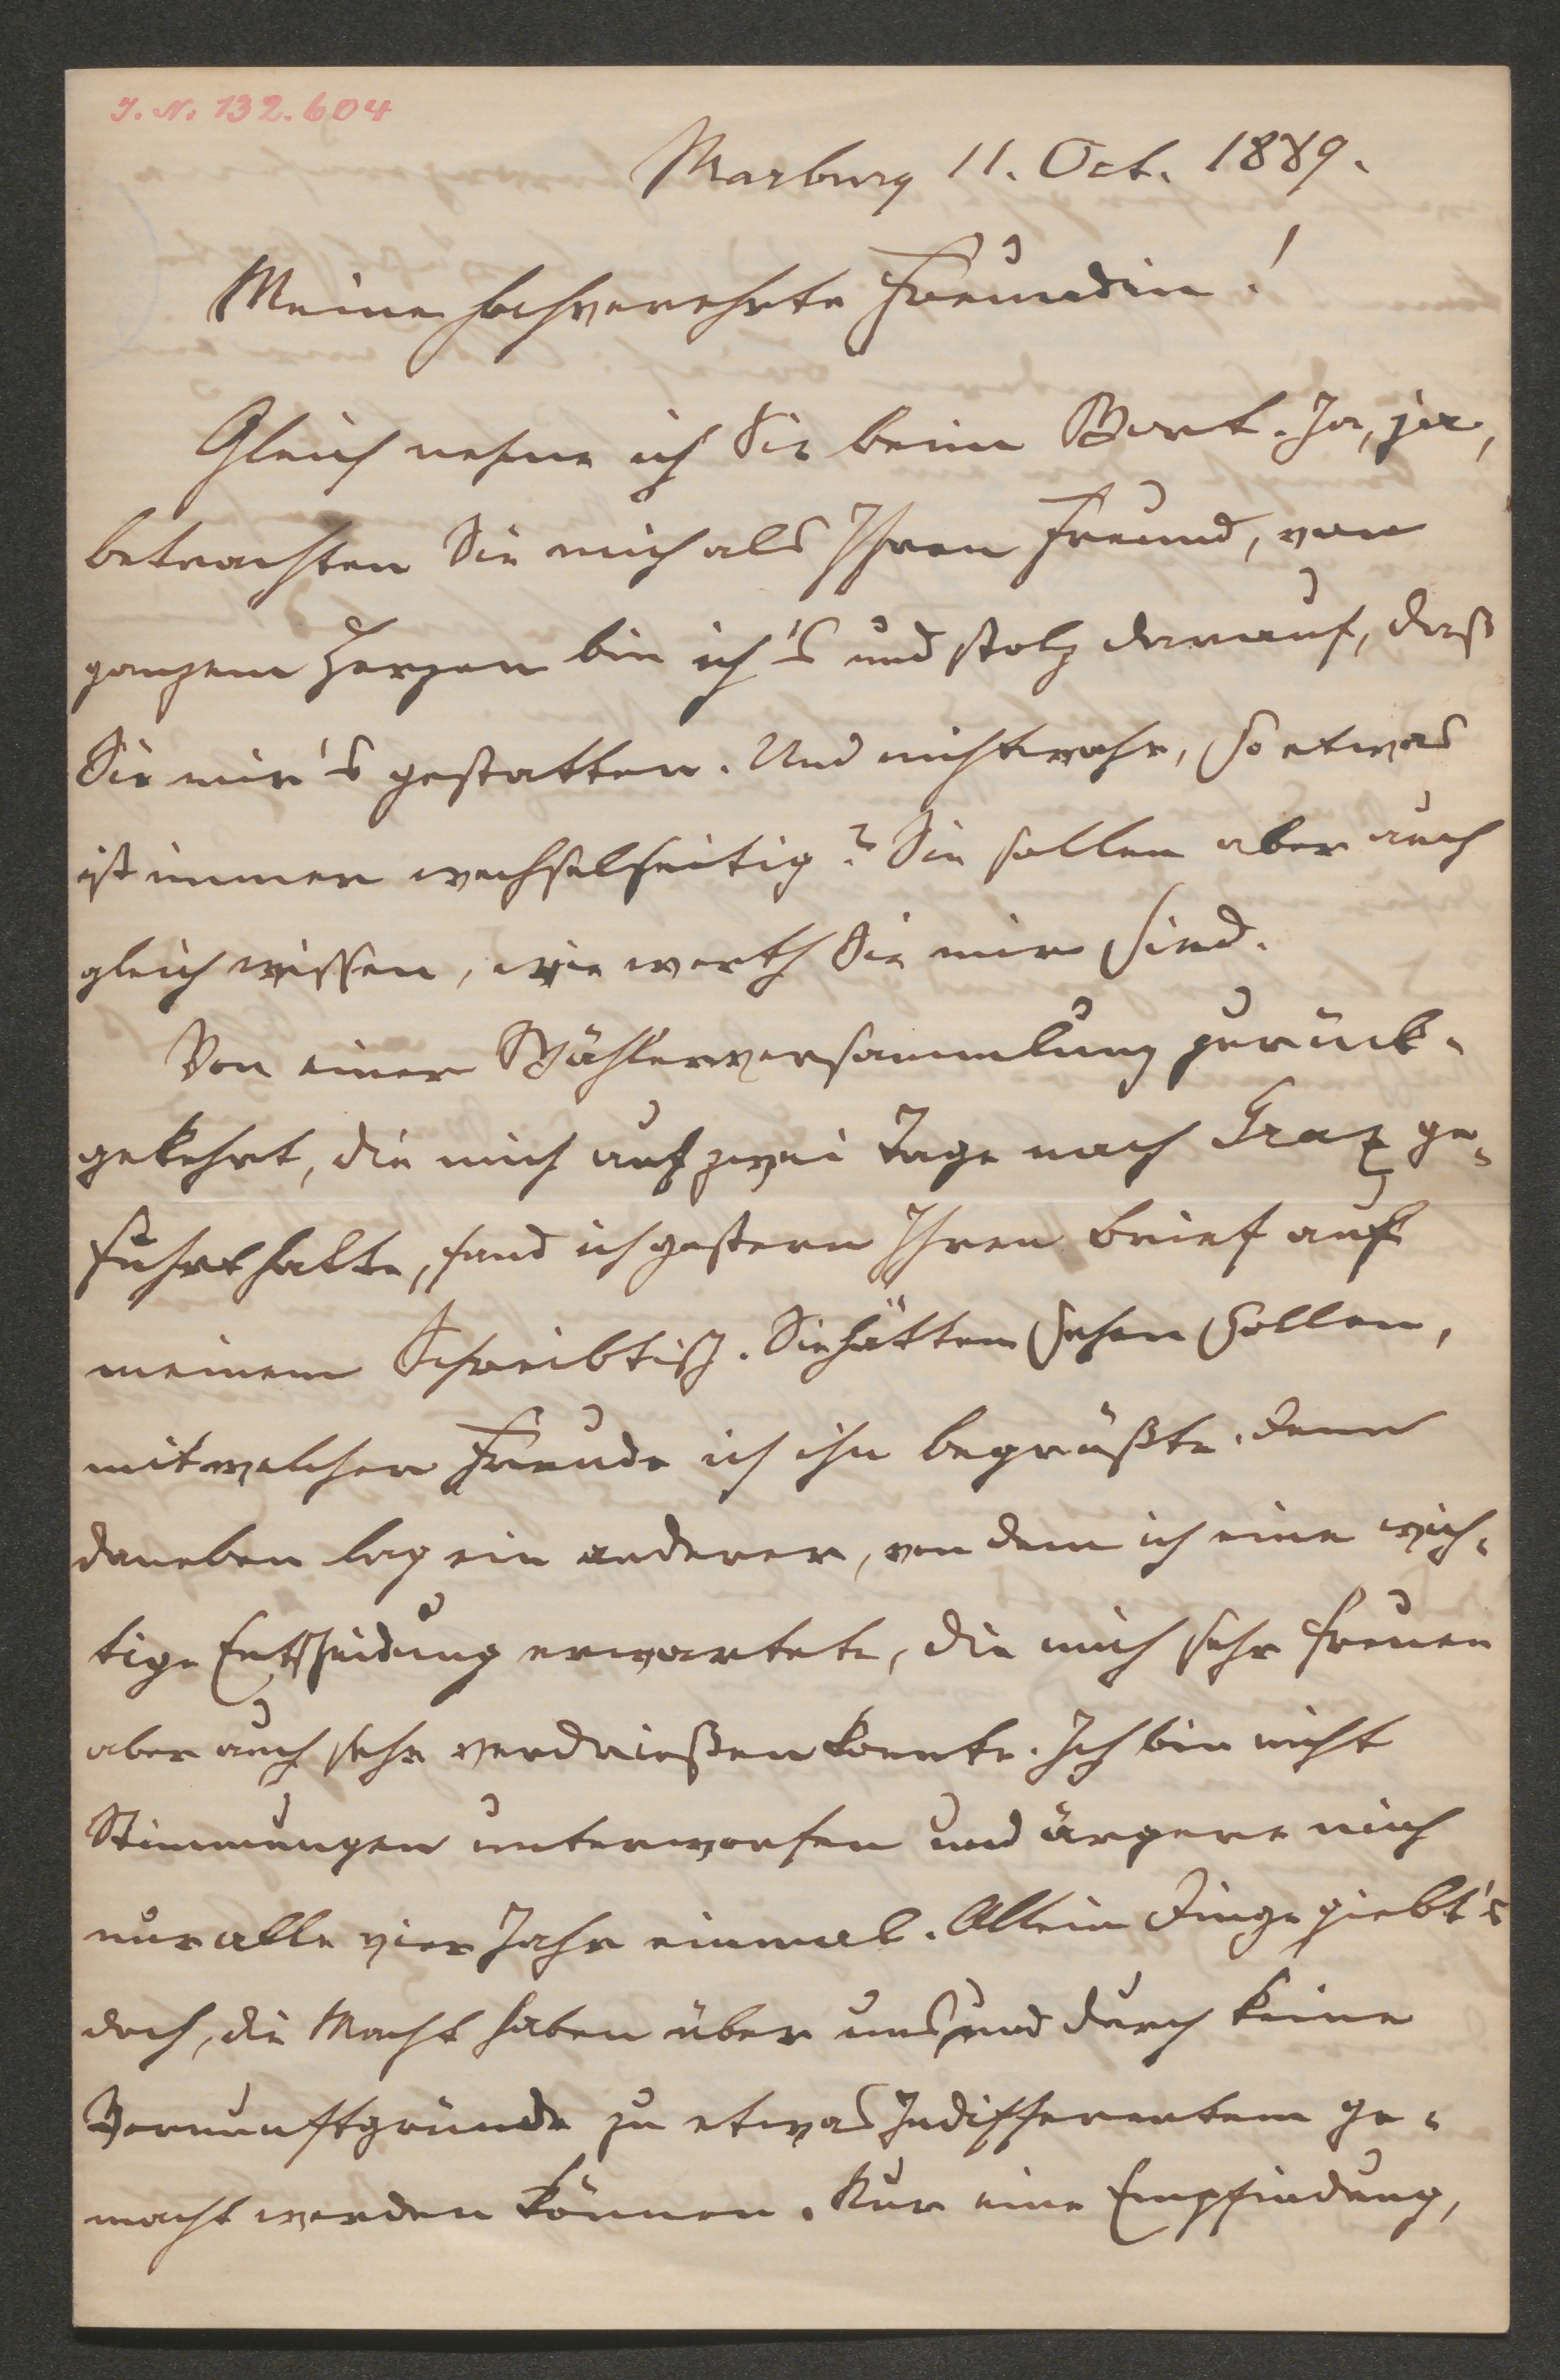 J. N. 132.604
Marburg 11. Oct. 1889.
Meine hochverehrte Freundin!
Gleich nehme ich Sie beim Wort. Ja, ja,
betrachten Sie mich als Ihren Freund, von
ganzem Herzen bin ich's und stolz darauf, daß
Sie mir's gestatten. Und nichtwahr, so etwas
ist immer wechselseitig? Sie sollen aber auch
gleich wissen, wie werth Sie mir sind.
Von einer Wählerversammlung zurück-
gekehrt, die mich auf zwei Tage nach Graz ge-
führt hatte, fand ich gestern Ihren Brief auf
meinem Schreibtisch. Sie hätten sehen sollen,
mit welcher Freude ich ihn begrüßte. Denn
daneben lag ein anderer, von dem ich eine wich-
tige Entscheidung erwartete, die mich sehr freuen
aber auch sehr verdrießen konnte. Ich bin nicht
Stimmungen unterworfen und ärgere mich
nur alle vier Jahr einmal. Allein Dinge giebt's
doch, die Macht haben über uns und durch keine
Vernunftgründe zu etwas Indifferentem ge-
macht werden können. Nur eine Empfindung,